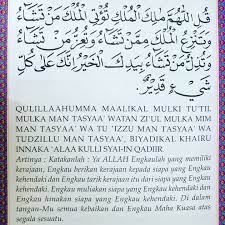 قُلِ اللّٰهُمَّ مٰلِكَ الْمُلْكِ تُؤْتِى الْمُلْكَ مَنْ تَشَآءُ
وَتَنْزِعُ الْمُلْكَ مِمَّنْ تَشَآءُ وَتُعِزُّ مَنْ تَشَآءُ
وَتُذِلُّ مَنْ تَشَآءُ بِيَدِكَ الْخَيْرُ اِنَّكَ عَلٰى كُلِّ
شَيْءٍ قَدِيْرٌ
QULILLAAHUMMA MAALIKAL MULKI TU'TIL
MULKA MAN TASYAA' WATAN ZI'UL MULKA MIM
MAN TASYAA' WA TU 'IZZU MAN TASYAA' WA
TUDZILLU MAN TASYAA', BIYADIKAL KHAIRU
INNAKA 'ALAA KULLI SYAI-IN QADIIR.
Artinya : Katakanlah : Ya ALLAH Engkaulah yang memiliki
kerajaan, Engkau berikan kerajaan kepada siapa yang Engkau
kehendaki dan Engkau tarik kerajaan itu dari siapa yang Engkau
kehendaki. Engkau muliakan siapa yang Engkau kehendaki dan
Engkau hinakan siapa yang Engkau kehendaki. Di dalam
tangan-Mu semua kebaikan dan Engkau Maha Kuasa atas
segala sesuatu.